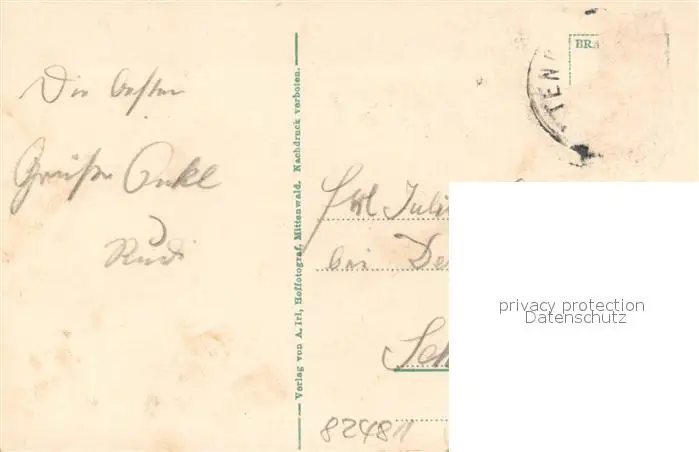 Die besten
Grüße Onkel
Rudi
Verlag von A. Irl, Hoffotograf, Mittenwald. Nachdruck verboten.
BRA
TEN
Frl Juli
bei De
Sch
82481
privacy protection
Datenschutz